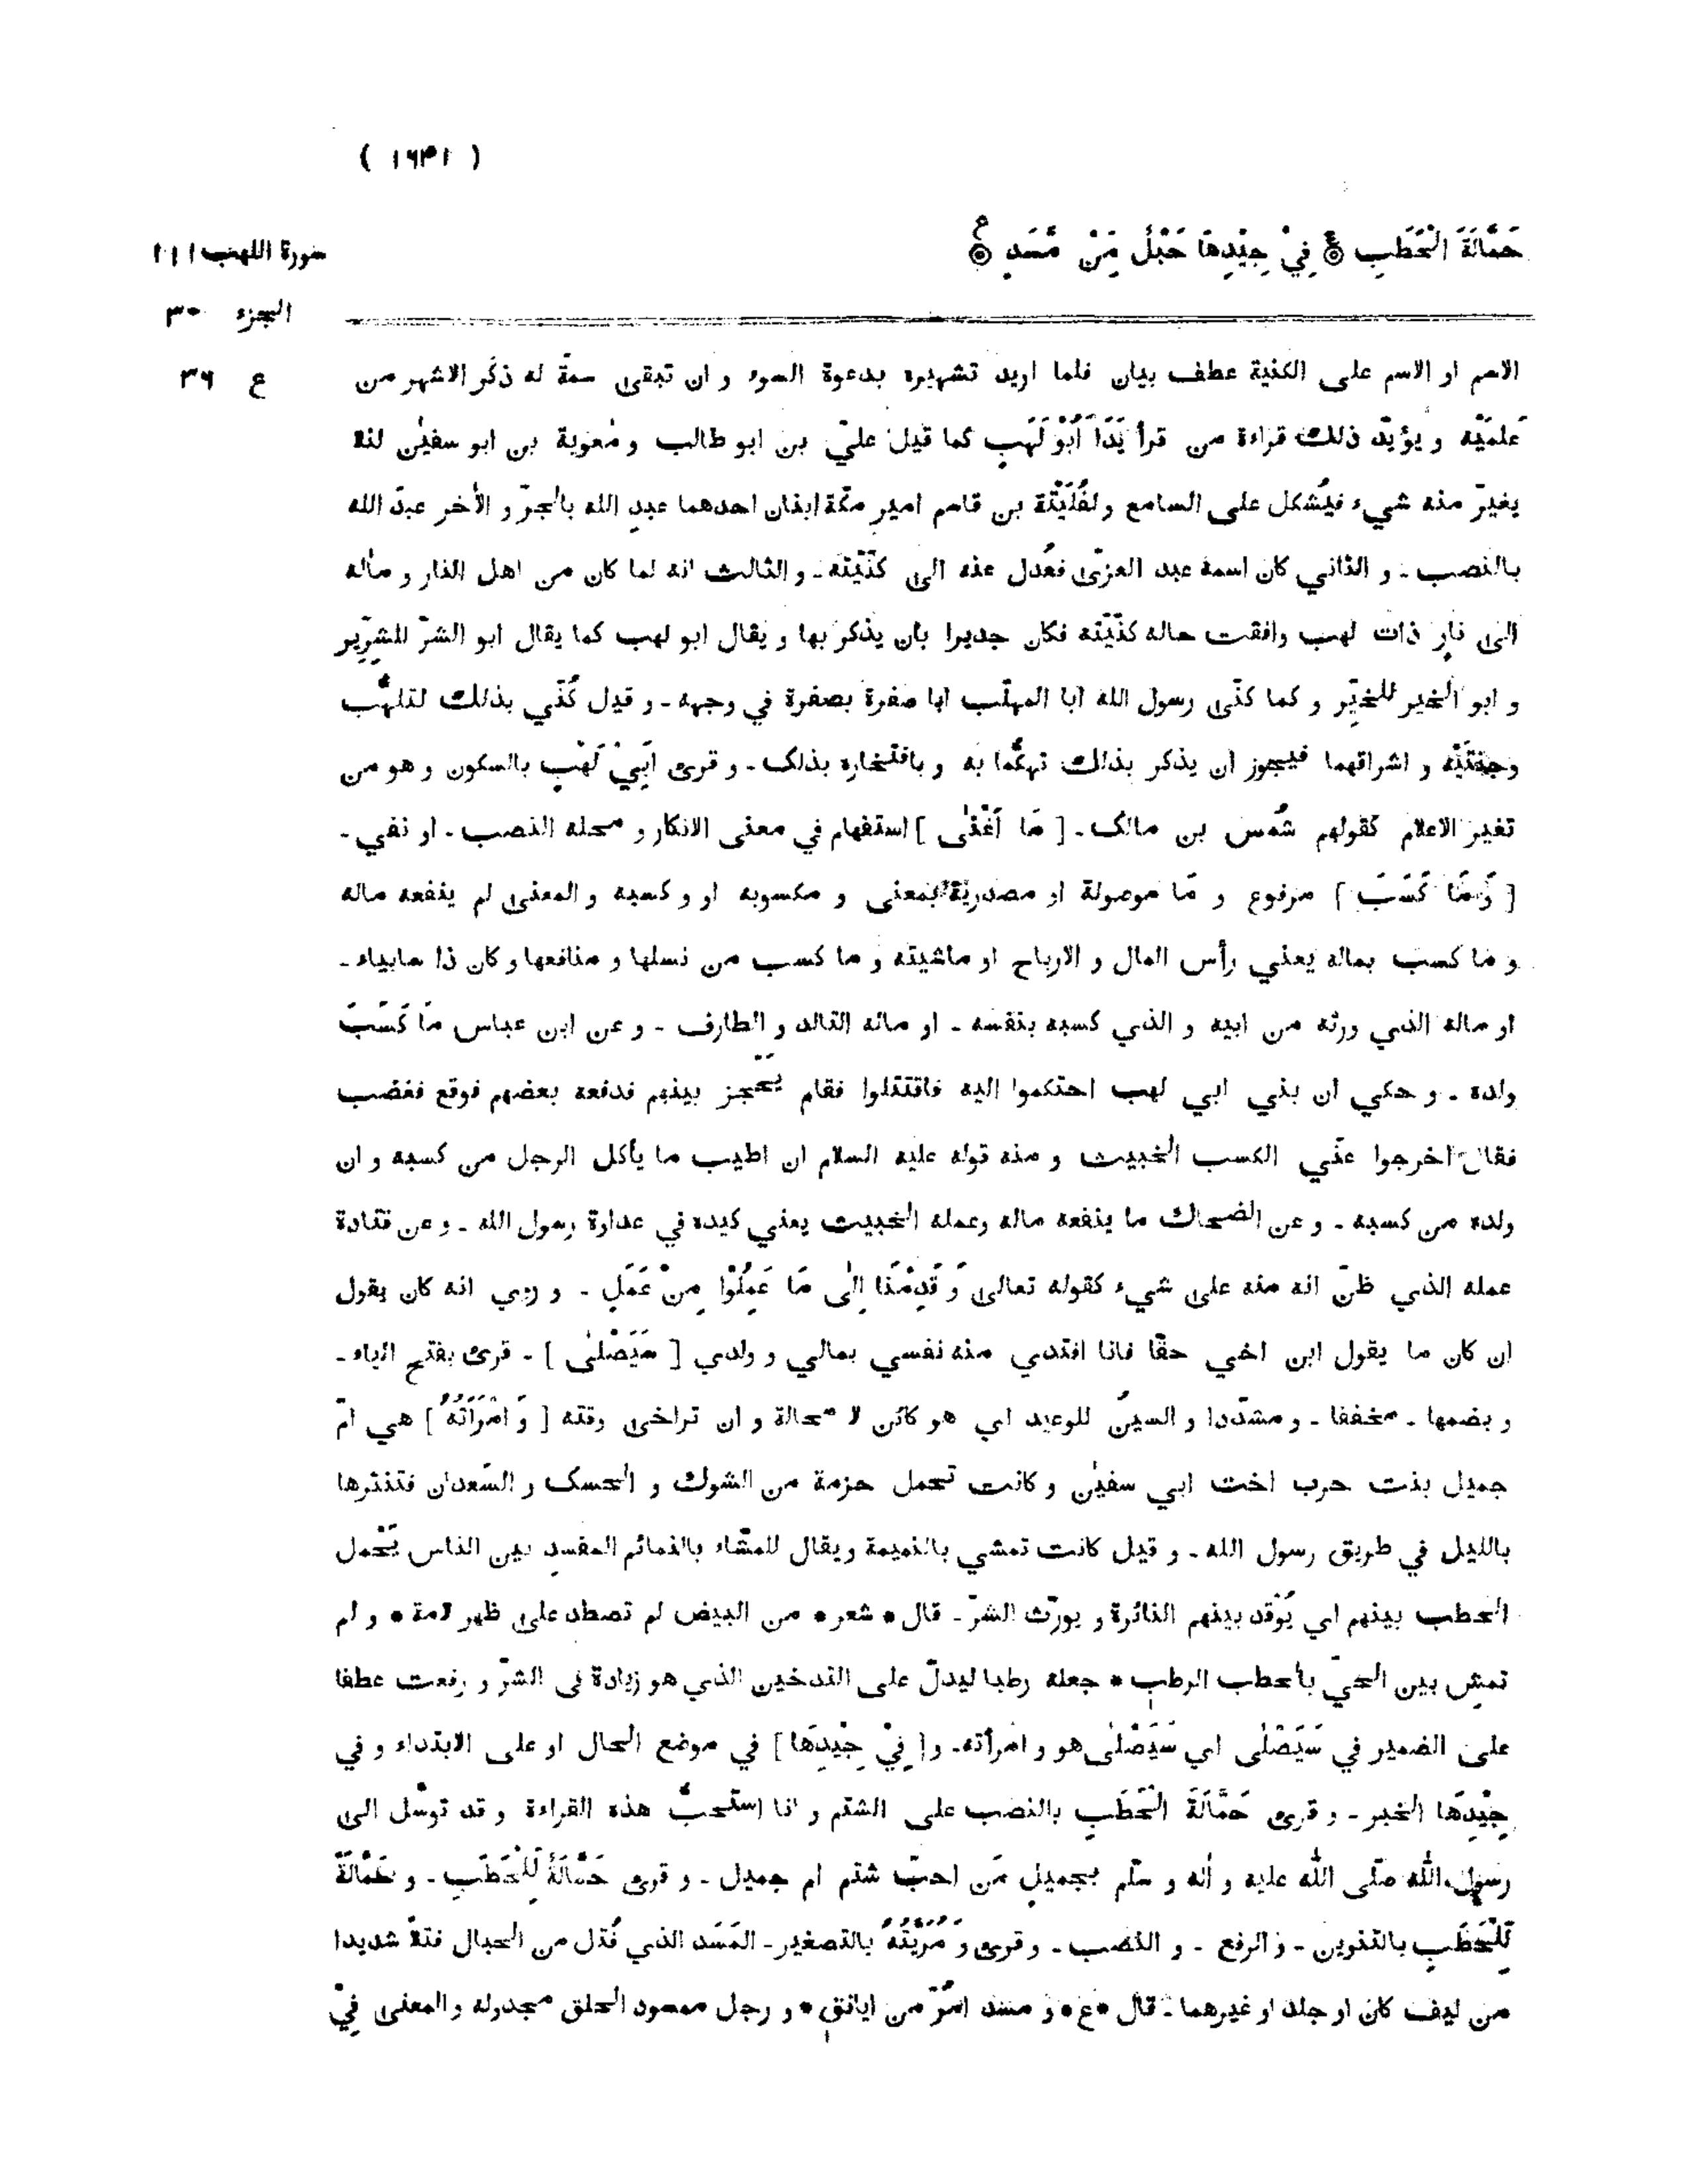 ( ١٦٣١ )
حَمَّالَةَ الْحَطَبِ ۞ فِيْ جِيْدِهَا حَبْلٌ مِّنْ مَّسَدٍ ۞
سورة اللهب ١١١
الجزء ٣٠
ع ٣٦
الاسم او الاسم على الكنية عطف بيان فلما اريد تشهيره بدعوة السوء و ان تبقى سمة له ذكر الاشهر من
علميه و يؤيد ذلك قراءة من قرأ يَدَا اَبُوْ لَهَبٍ كما قيل عليّ بن ابو طالب و معوية بن ابو سفين لئلا
يغيّر منه شيء فيُشكل على السامع ولفُلَيْتة بن قاسم امير مكة ابنان احدهما عبدِ الله بالجرّ و الأخر عبدَ الله
بالنصب ـ و الثاني كان اسمه عبد العزّى فعُدل عنه الى كنيته ـ و الثالث انه لما كان من اهل النار و مأله
الى نارٍ ذات لهب وافقت حاله كنيته فكان جديرا بأن يذكر بها و يقال ابو لهب كما يقال ابو الشرّ للشرِّير
و ابو الخير للخيّر و كما كنّى رسول الله ابا المهلّب ابا صفرة بصفرة في وجهه ـ و قيل كُنّي بذلك لتلهُّب
وجنتَيْه و اشراقهما فيجوز ان يذكر بذلك تهكُّما به و بافتخاره بذلك ـ و قرئ اَبِيْ لَهْبٍ بالسكون و هو من
تغير الاعلام كقولهم شُمس بن مالك ـ [ مَا اَغْنٰى ] استفهام في معنى الانكار و محله النصب ـ او نفي ـ
[ وَمَا كَسَبَ ] مرفوع و مَا موصولة او مصدريّة بمعنى و مكسوبه او و كسبه و المعنى لم ينفعه ماله
و ما كسب بماله يعني رأس المال و الارباح او ماشيته و ما كسب من نسلها و منافعها و كان ذا سابياء ـ
او ماله الذي ورثه من ابيه و الذي كسبه بنفسه ـ او ماله التالد و الطارف ـ و عن ابن عباس مَا كَسَبَ
ولده ـ و حكي ان بني ابي لهب احتكموا اليه فاقتتلوا فقام يحجز بينهم فدفعه بعضهم فوقع فغضب
فقال اخرجوا عنّي الكسب الخبيث و منه قوله عليه السلام ان اطيب ما يأكل الرجل من كسبه و ان
ولده من كسبه ـ و عن الضحاك ما ينفعه ماله وعمله الخبيث يعني كيده في عداوة رسول الله ـ و عن قتادة
عمله الذي ظنّ انه منه على شيء كقوله تعالى وَ قَدِمْنَا اِلٰى مَا عَمِلُوْا مِنْ عَمَلٍ ـ و روي انه كان يقول
ان كان ما يقول ابن اخي حقّا فانا افتدي منه نفسي بمالي و ولدي [ سَيَصْلٰى ] ـ قرئ بفتح الياء ـ
و بضمها ـ مخففا ـ و مشدّدا و السين للوعيد اي هو كائن لا محالة و ان تراخى وقته [ وَ امْرَاَتُهٗ ] هي امّ
جميل بنت حرب اخت ابي سفين و كانت تحمل حزمة من الشوك و الحسك و السّعدان فتنثرها
بالليل في طريق رسول الله ـ و قيل كانت تمشي بالنميمة و يقال للمشّاء بالنمائم المفسد بين الناس يَحمل
الحطب بينهم اي يُوقد بينهم النائرة و يورّث الشرّ ـ قال • شعر • من البيض لم تصطد على ظهر لامة • و لم
تمش بين الحيّ بالحطب الرطبِ • جعله رطبا ليدلّ على التدخين الذي هو زيادة فى الشرّ و رفعت عطفا
على الضمير في سَيَصْلٰى اي سَيَصْلٰى هو و امرأته ـ و [ فِيْ جِيْدِهَا ] في موضع الحال او على الابتداء و في
جِيْدِهَا الخبر ـ و قرئ حَمَّالَةَ الْحَطَبِ بالنصب على الشتم و انا استحبُّ هذه القراءة و قد توسّل الى
رسول الله صلّى الله عليه و أله و سلّم بجميلٍ مَن احبّ شتم ام جميل ـ و قرئ حَمَّالَةٌ لِّلْحَطَبِ ـ و حَمَّالَةً
لِّلْحَطَبِ بالتنوين ـ و الرفع ـ و النصب ـ و قرئ وَ مُرَيَّتُهٗ بالتصغير ـ المَسَد الذي فُتل من الحبال فتلا شديدا
من ليف كان او جلد او غيرهما ـ قال • ع • و مسد اُمرّ من ايانق • و رجل ممسود الخلق مجدوله و المعنى فِيْ